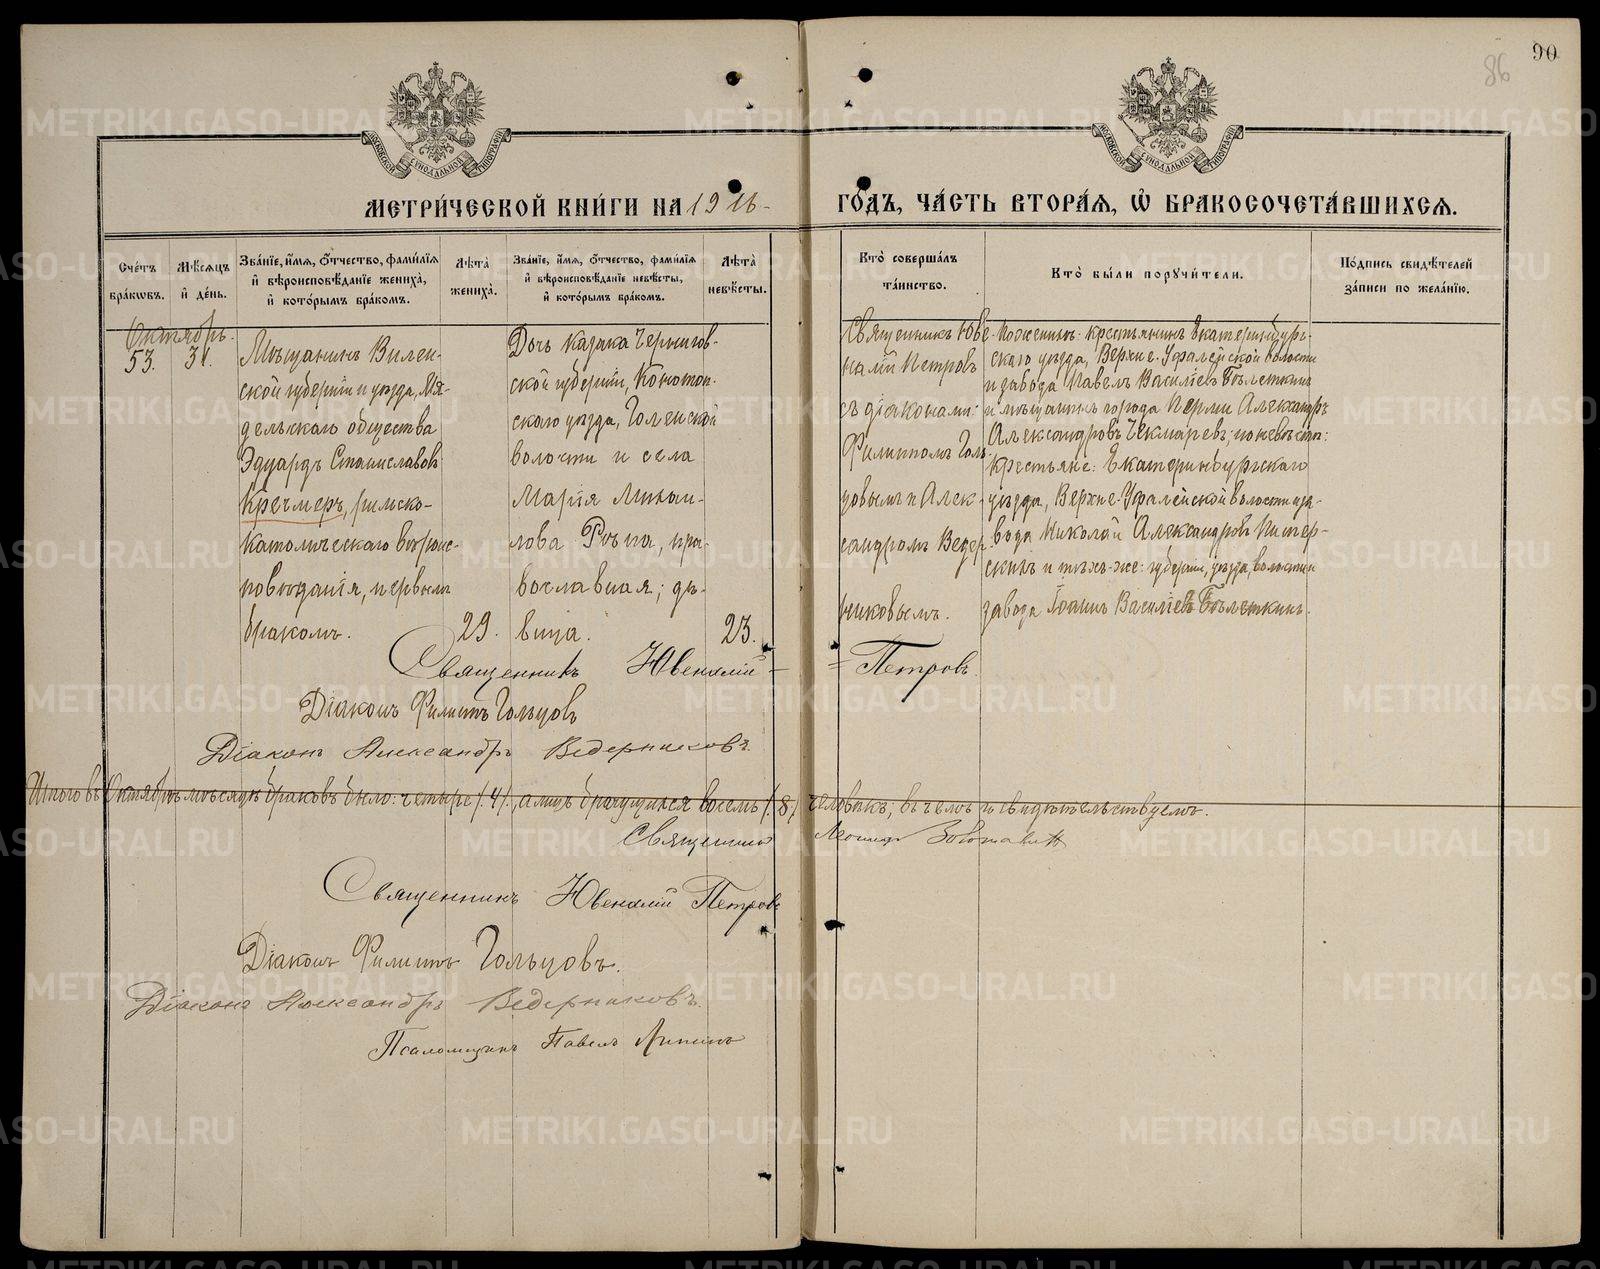 90
86
МОСКОВСКОЙ СѴНОДАЛЬНОЙ ТИПОГРАФІИ
МОСКОВСКОЙ СѴНОДАЛЬНОЙ ТИПОГРАФІИ
МЕТРИ́ЧЕСКОЙ КНИ́ГИ НА 1916
ГО́ДЪ, ЧА́СТЬ ВТОРА́Я, Ѡ БРАКОСОЧЕТА́ВШИХСЯ.
Сче́тъ
бра́ковъ.
Мѣ́сяцъ
и҆ де́нь.
Зва́нїе, и҆́мя, ѻ҆́тчество, фами́лїя
и҆ вѣроисповѣ́данїе жениха̀,
и҆ кото́рымъ бра́комъ.
Лѣ́та
жениха̀.
Зва́нїе, и҆́мя, ѻ҆́тчество, фами́лїя
и҆ вѣроисповѣ́данїе невѣ́сты,
и҆ кото́рымъ бра́комъ.
Лѣ́та
невѣ́сты.
Кто̀ соверша́лъ
та́инство.
Кто̀ бы́ли поручи́тели.
По́дпись свидѣ́телей
за́писи по жела́нїю.
Октябрь.
53. 31.
Мѣщанинъ Вилен-
ской губерніи и уѣзда, Мя-
дельскаго общества
Эдуардъ Станиславовъ
Кречмеръ, римско-
католическаго вѣроис-
повѣданія, первымъ
бракомъ.
29.
Дочь казака Чернигов-
ской губерніи, Конотоп-
скаго уѣзда, Голенской
волости и села
Марія Михаи-
лова Роѣпа, пра-
вославная; дѣ-
вица.
23.
Священникъ Юве-
налій Петровъ
съ діаконами:
Филиппомъ Голь-
цовымъ и Алек-
сандромъ Ведер-
никовымъ.
По женихѣ: крестьянинъ Екатеринбург-
скаго уѣзда, Верхне-Уфалейской волости
и завода Павелъ Василіевъ Бѣлеткинъ
и мѣщанинъ города Перми Александръ
Александровъ Чекмаревъ; по невѣстѣ:
крестьяне: Екатеринбургскаго
уѣзда, Верхне-Уфалейской волости и за-
вода Николай Александровъ Питер-
скихъ и тѣхъ-же: губерніи, уѣзда, волости и
завода Іоаннъ Василіевъ Бѣлеткинъ.
Священникъ Ювеналій = = Петровъ.
Діаконъ Филиппъ Гольцовъ
Діаконъ Александръ Ведерниковъ.
Итого въ Октябрѣ мѣсяцѣ браковъ было: четыре /4/, а лицъ брачущихся восемь /8/ человѣкъ; въ чемъ и свидѣтельствуемъ.
Священникъ
Священникъ Ювеналій Петровъ
Діаконъ Филиппъ Гольцовъ.
Діаконъ Александръ Ведерниковъ.
Псаломщикъ Павелъ
METRIKI.GASO-URAL.RU